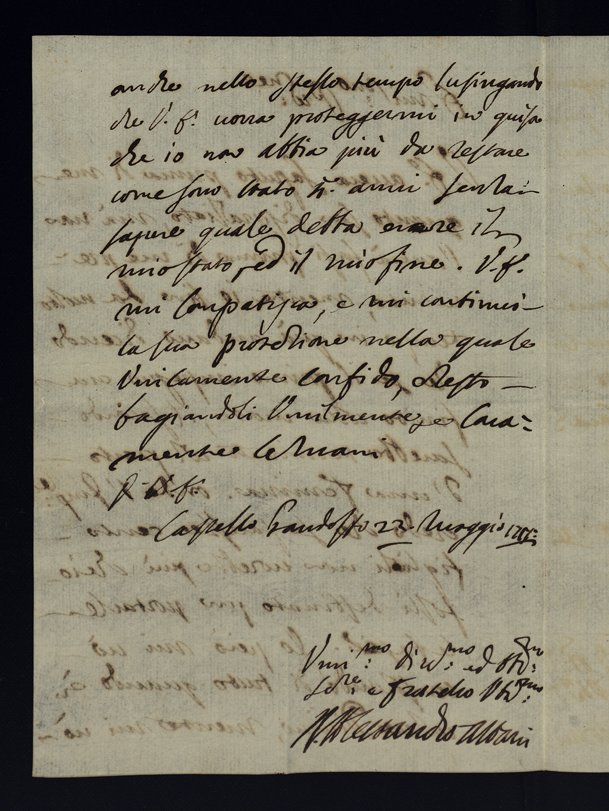 anche nello stesso tempo lusingando
che V. E. vorrà proteggermi in guisa
che io non abbia più da restare
come sono stato anni senza
sapere quale debba essere il
mio stato, ed il mio fine. V. E.
mi compatisca, e mi continui
la sua protezione nella quale
Unicamente confido, e resto
bagiandoli Umilmente, e Cara=
mente le Mani
D. V. E.
Castello Gandolfo 22 Maggio
Um.mo Div.mo ed Obb.mo
Se.re e Fratello
Alessandro Albani